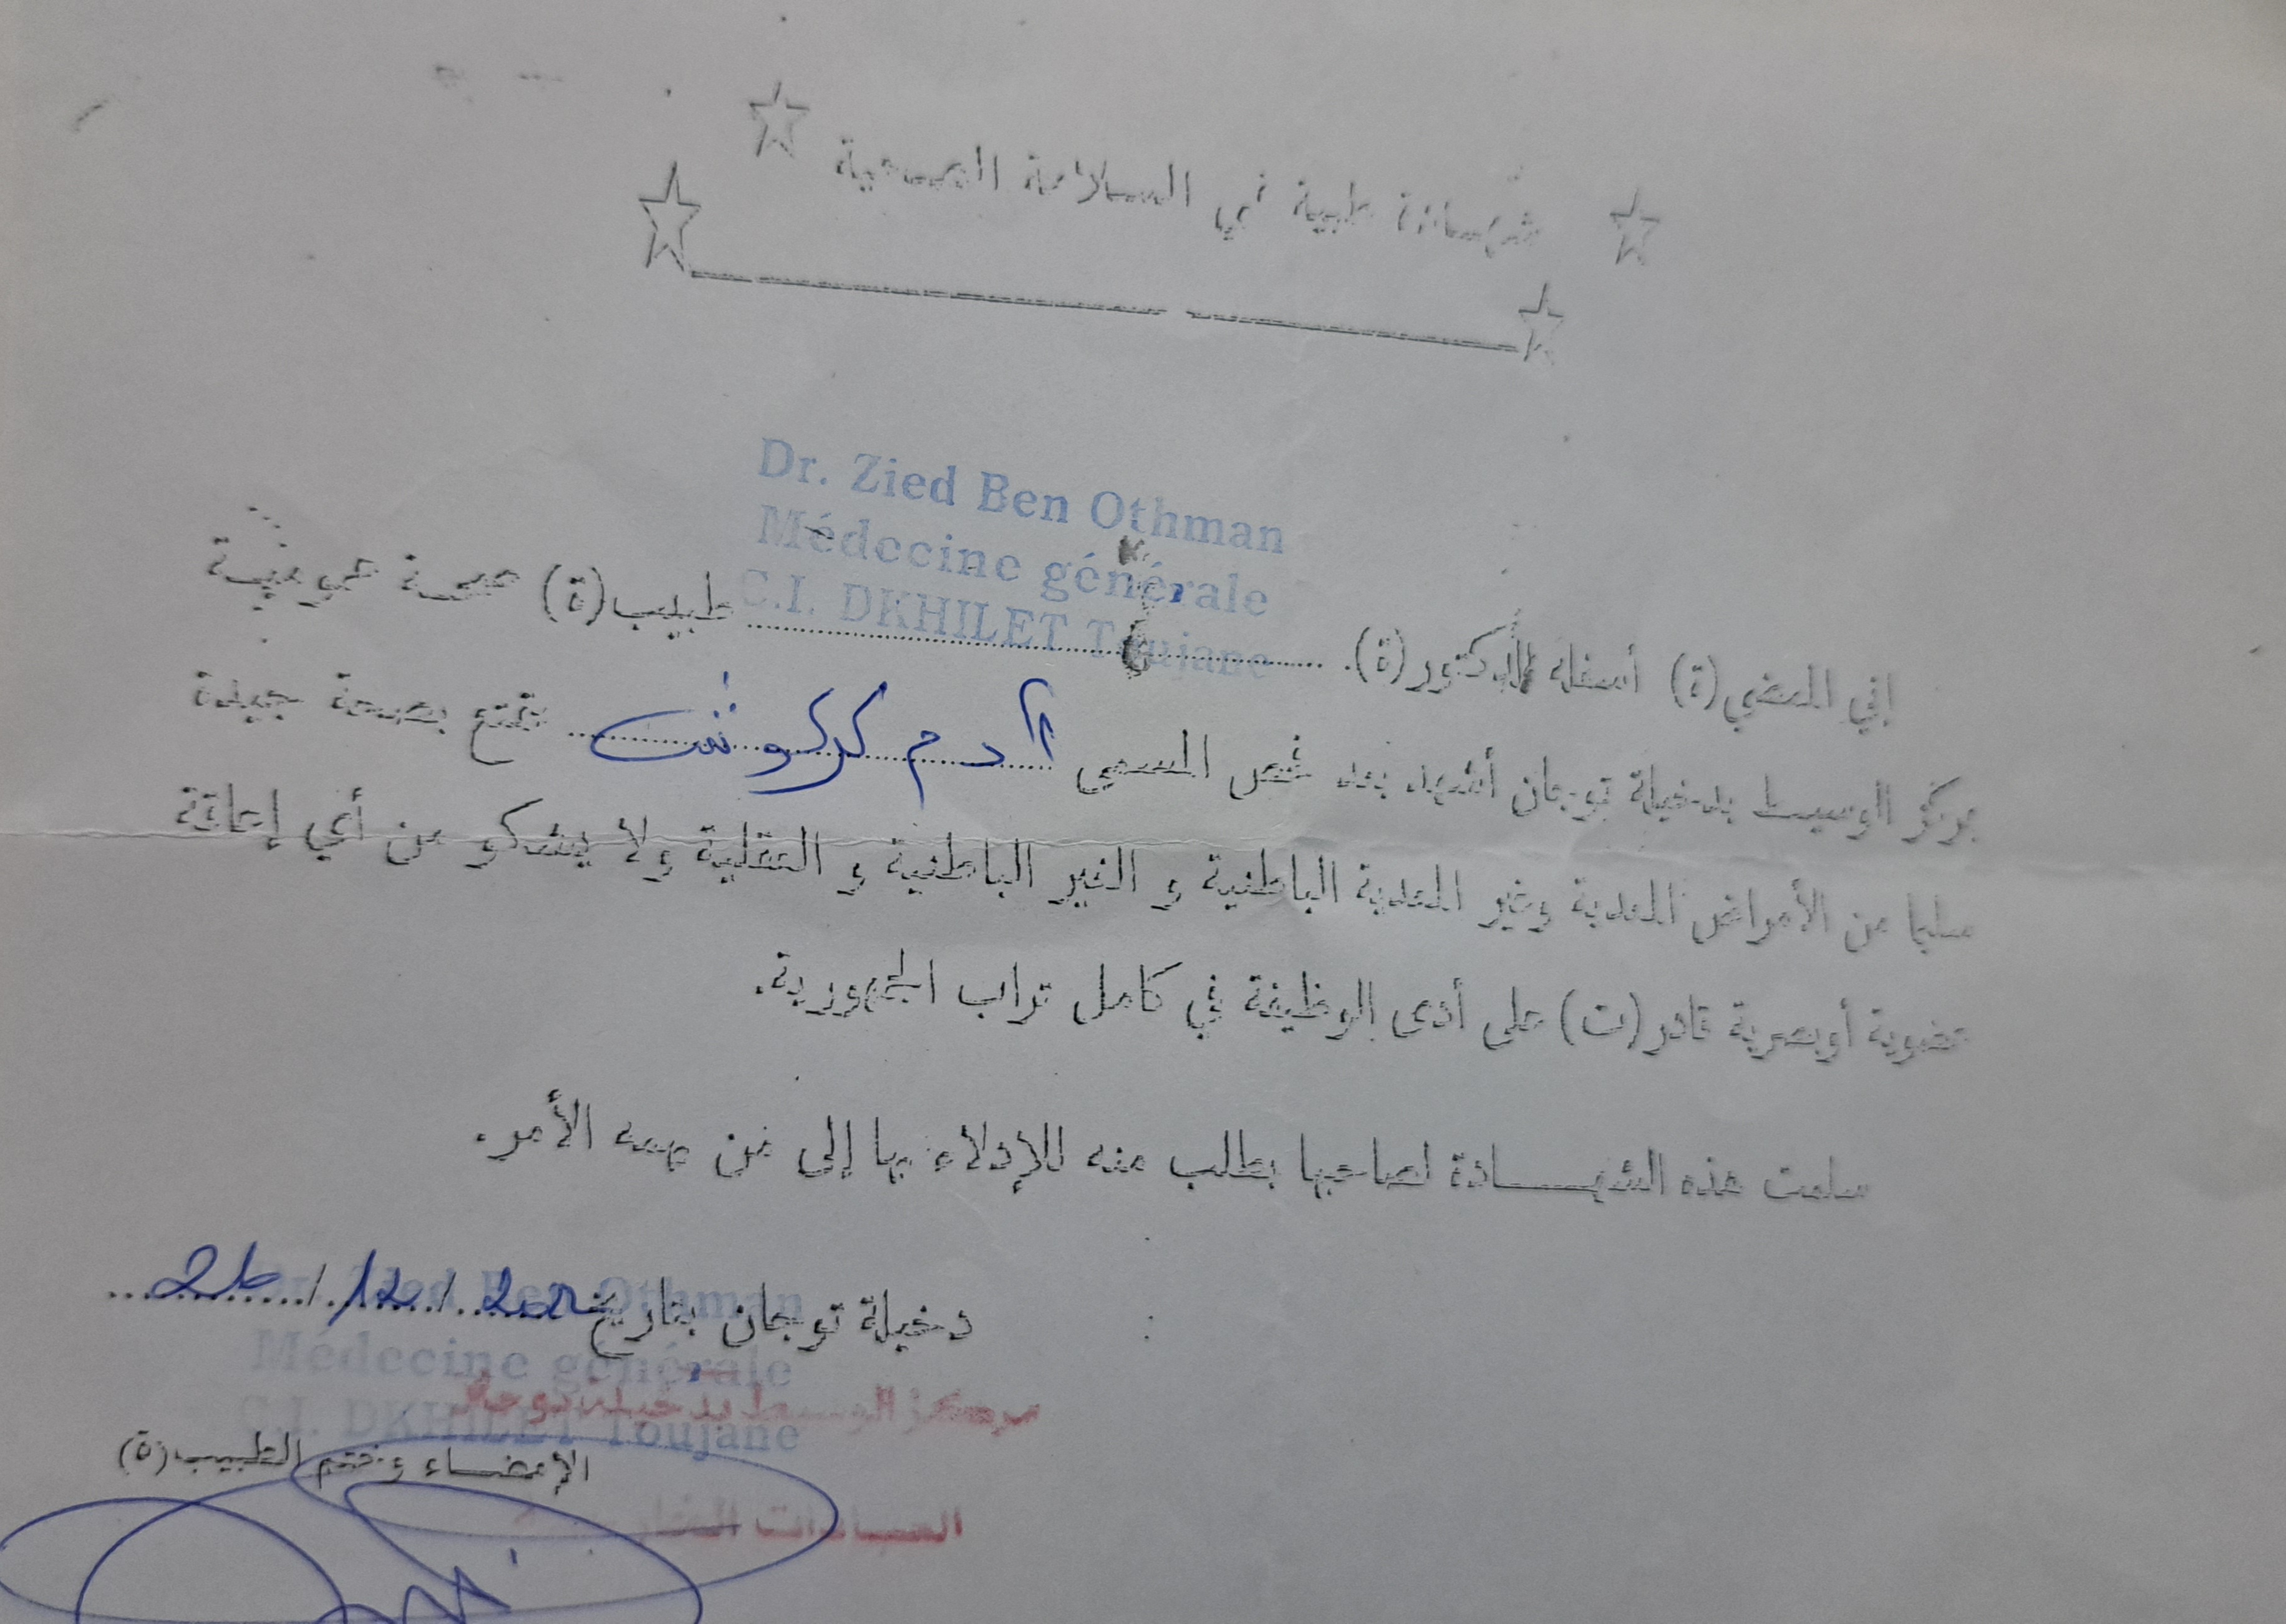 شهادة طبية في السلامة الصحية
Dr. Zied Ben Othman
Médecine générale
C.I. DKHILET Toujane
إني الممضي(ة) أسفله الدكتور(ة). طبيب(ة) صحة عمومية
بمركز الوسيط بدخيلة توجان أشهد بعد فحص المسمى آدم كركوش تمتع بصحة جيدة
سليما من الأمراض المعدية وغير المعدية الباطنية و الغير الباطنية و العقلية ولا يشكو من أي إعاقة
عضوية أوبصرية قادر(ت) على أدى الوظيفة في كامل تراب الجمهورية.
سلمت هذه الشهـــادة لصاحبها بطلب منه للإدلاء بها إلى من يهمه الأمر.
دخيلة توجان بتاريخ / 12 /
Dr. Zied Ben Othman
Médecine générale
مركز الوسيط بدخيلة توجان
C.I. DKHILET Toujane
الإمضاء وختم الطبيب(ة)
العيادات الخارجية